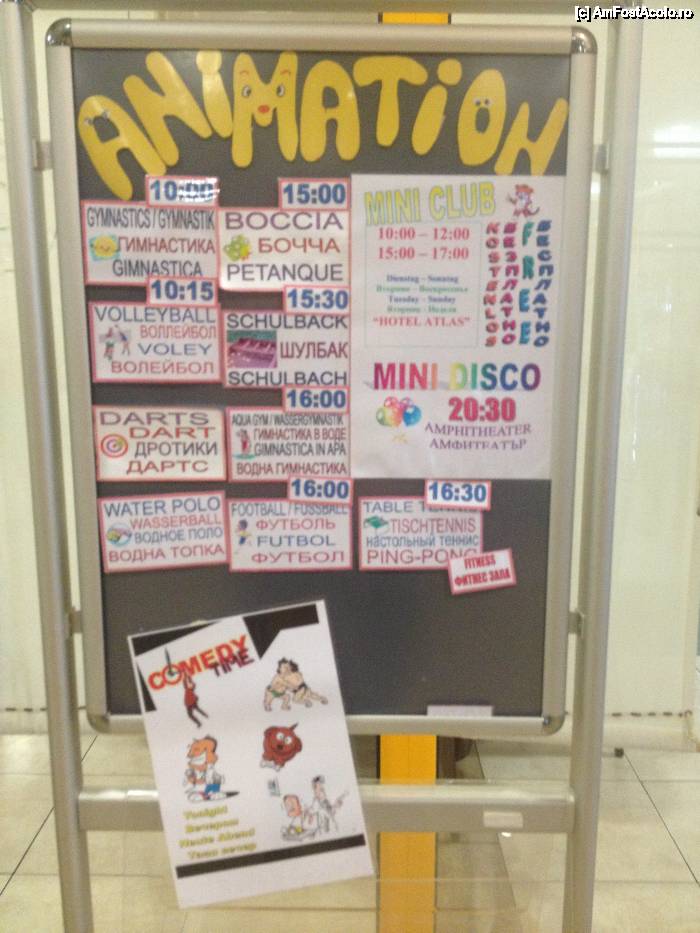 [c] AmFostAcolo.ro
ANiMATiON
10:00
GYMNASTICS / GYMNASTIK
ГИМНАСТИКА
GIMNASTICA
10:15
VOLLEYBALL
ВОЛЛЕЙБОЛ
VOLEY
ВОЛЕЙБОЛ
DARTS
DART
ДРОТИКИ
ДАРТС
WATER POLO
WASSERBALL
ВОДНОЕ ПОЛО
ВОДНА ТОПКА
15:00
BOCCIA
БОЧЧА
PETANQUE
15:30
SCHULBACK
ШУЛБАК
SCHULBACH
16:00
AQUA GYM / WASSERGYMNASTIK
ГИМНАСТИКА В ВОДЕ
GIMNASTICA IN APA
ВОДНА ГИМНАСТИКА
16:00
FOOTBALL / FUSSBALL
ФУТБОЛЬ
FUTBOL
ФУТБОЛ
16:30
TABLE TENNIS
TISCHTENNIS
настольный теннис
PING-PONG
FITNESS
ФИТНЕС ЗАЛА
MINI CLUB
10:00 – 12:00
15:00 – 17:00
Dienstag – Sonntag
Вторник – Воскресенье
Tuesday – Sunday
Вторник – Неделя
"HOTEL ATLAS"
KOSTENLOS
БЕЗПЛАТНО
FREE
БЕСПЛАТНО
MINI DISCO
20:30
AMPHITHEATER
АМФИТЕАТЪР
COMEDY
TIME
Tonight
Вечером
Heute Abend
Тази вечер